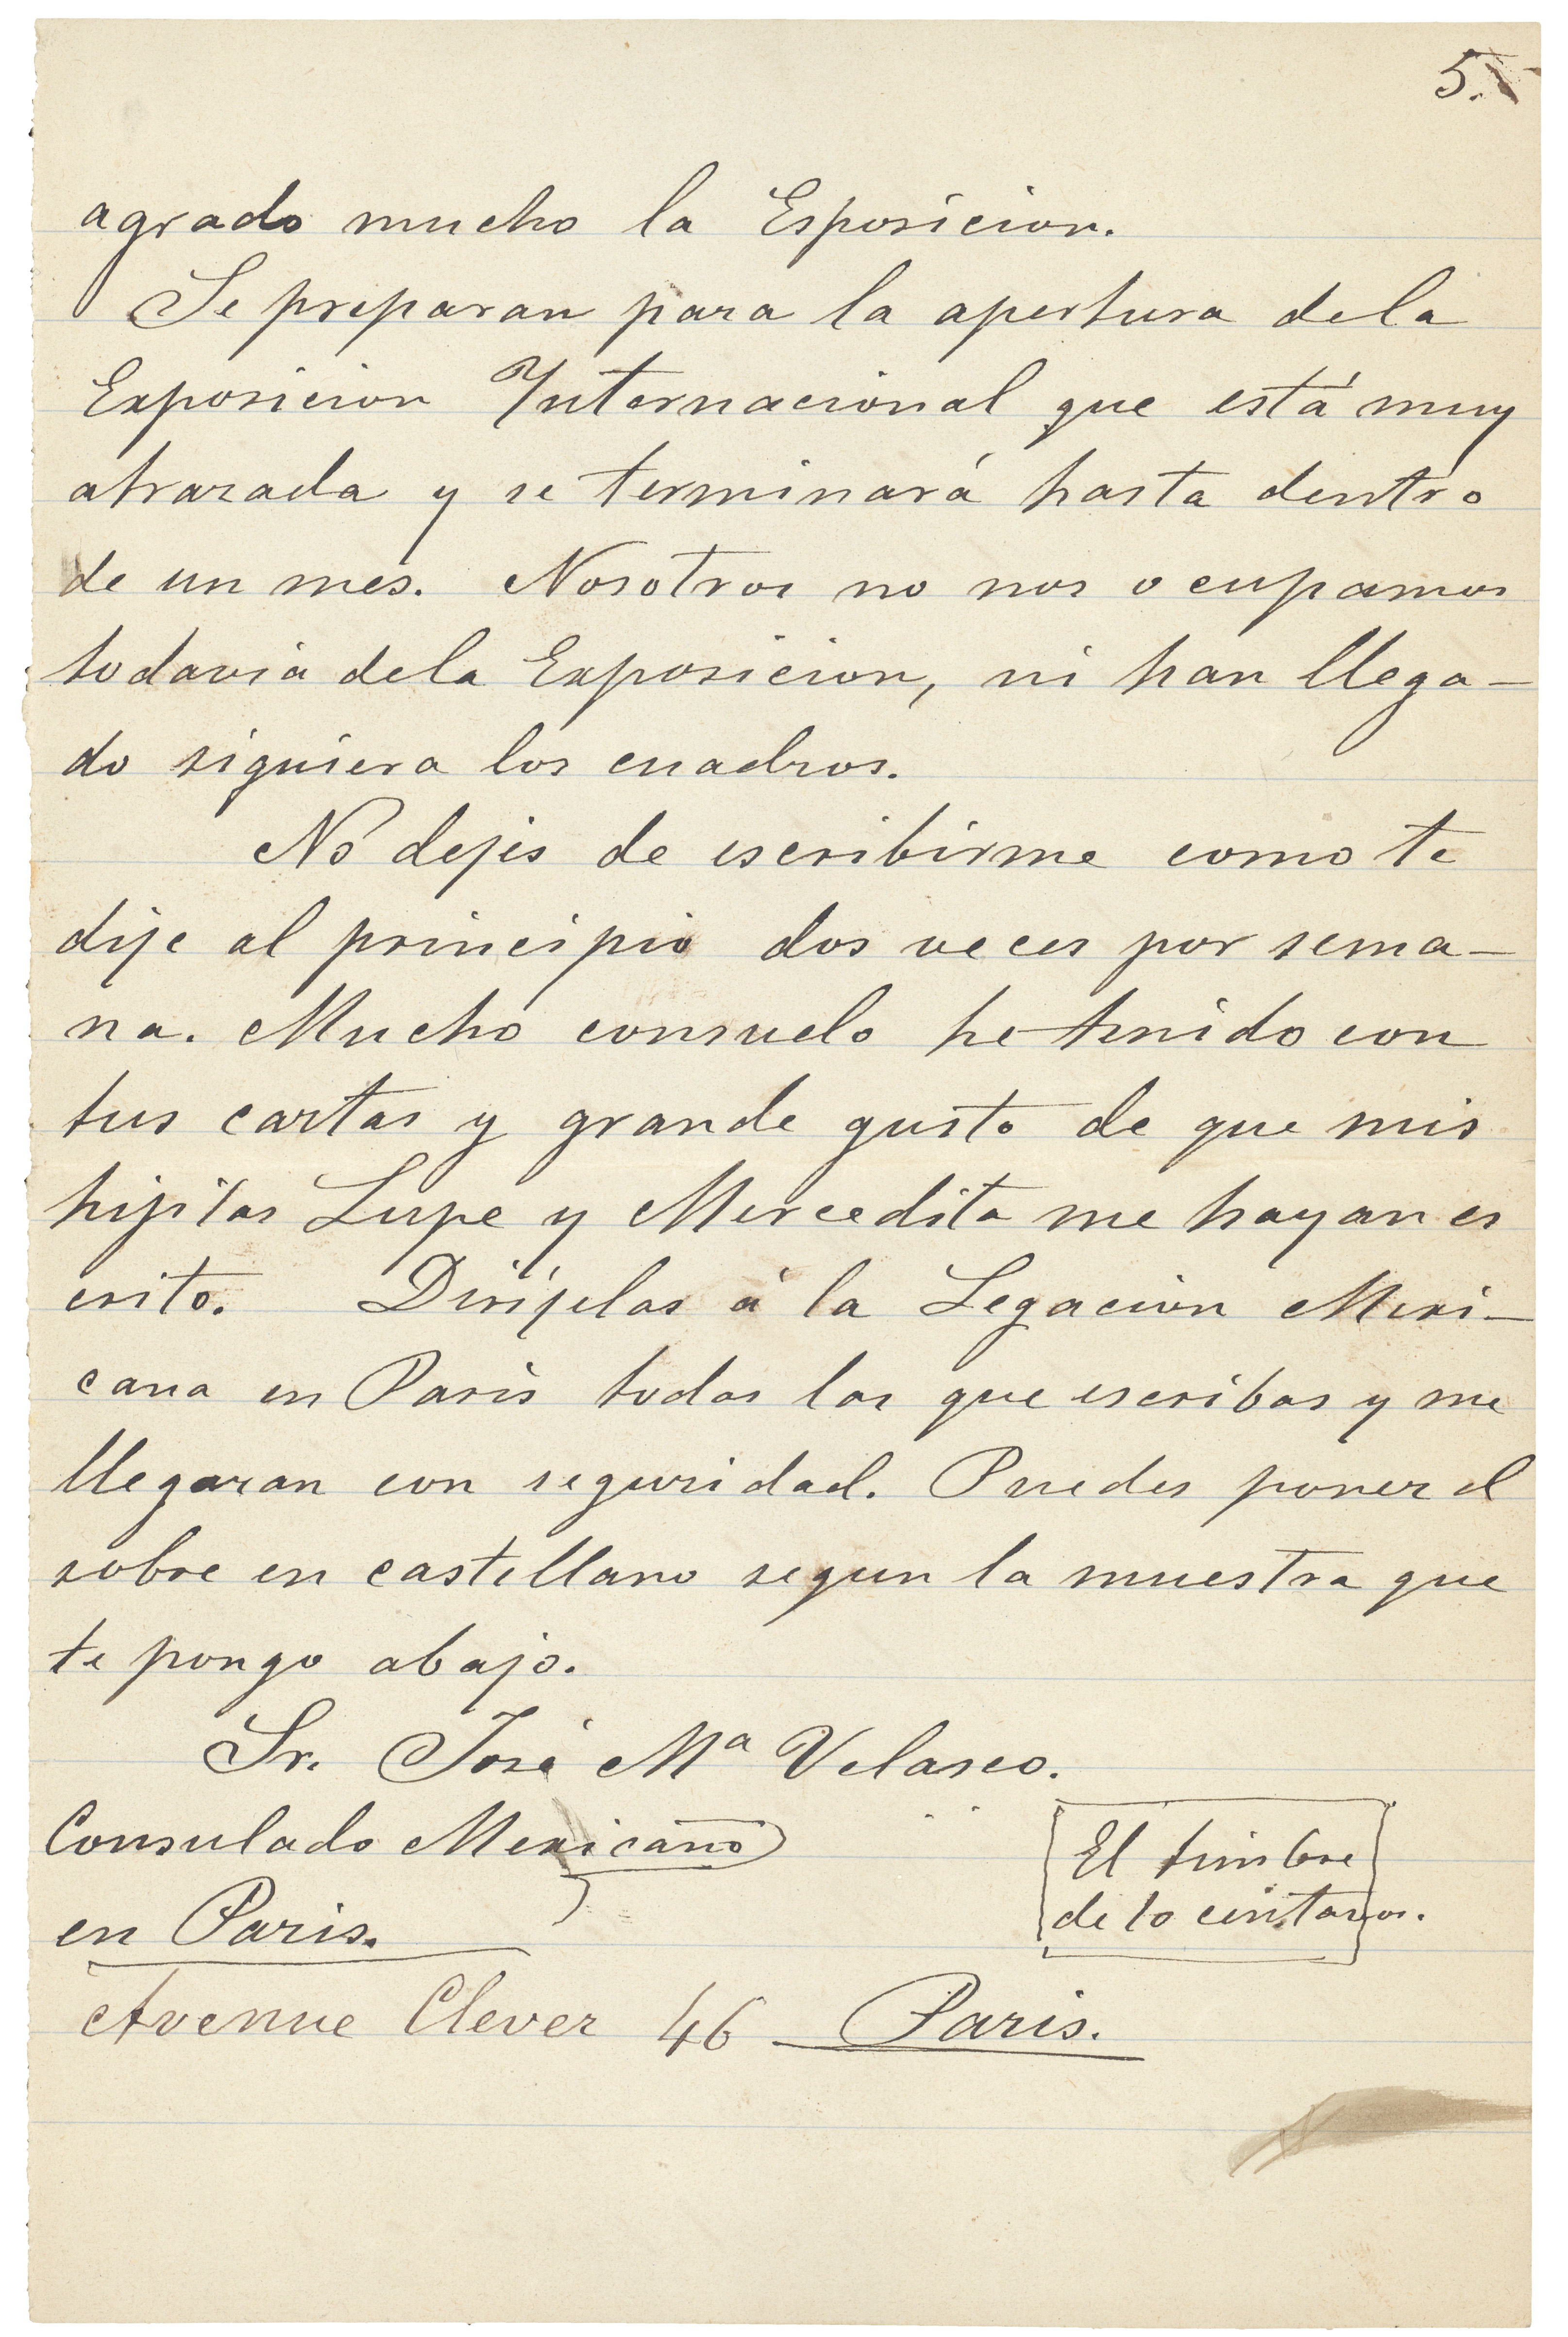 5.
agrado mucho la Esposicion.
Se preparan para la apertura dela
Exposicion Internacional que está muy
atrazada y se terminará hasta dentro
de un mes. Nosotros no nos ocupamos
todavia dela Exposicion, ni han llega-
do siquiera los cuadros.
No dejes de escribirme como te
dije al principio dos veces por sema-
na. Mucho consuelo he tenido con
tus cartas y grande gusto de que mis
hijitas Lupe y Mercedita me hayan es
crito. Dirijelas á la Legacion Mexi-
cana en Paris todas las que escribas y me
llegaran con seguridad. Puedes poner el
sobre en castellano segun la muestra que
te pongo abajo.
Sr. José Mª Velasco.
Consulado Mexicano
en Paris.
El timbre
de 10 centavos.
Avenue Clever 46 Paris.